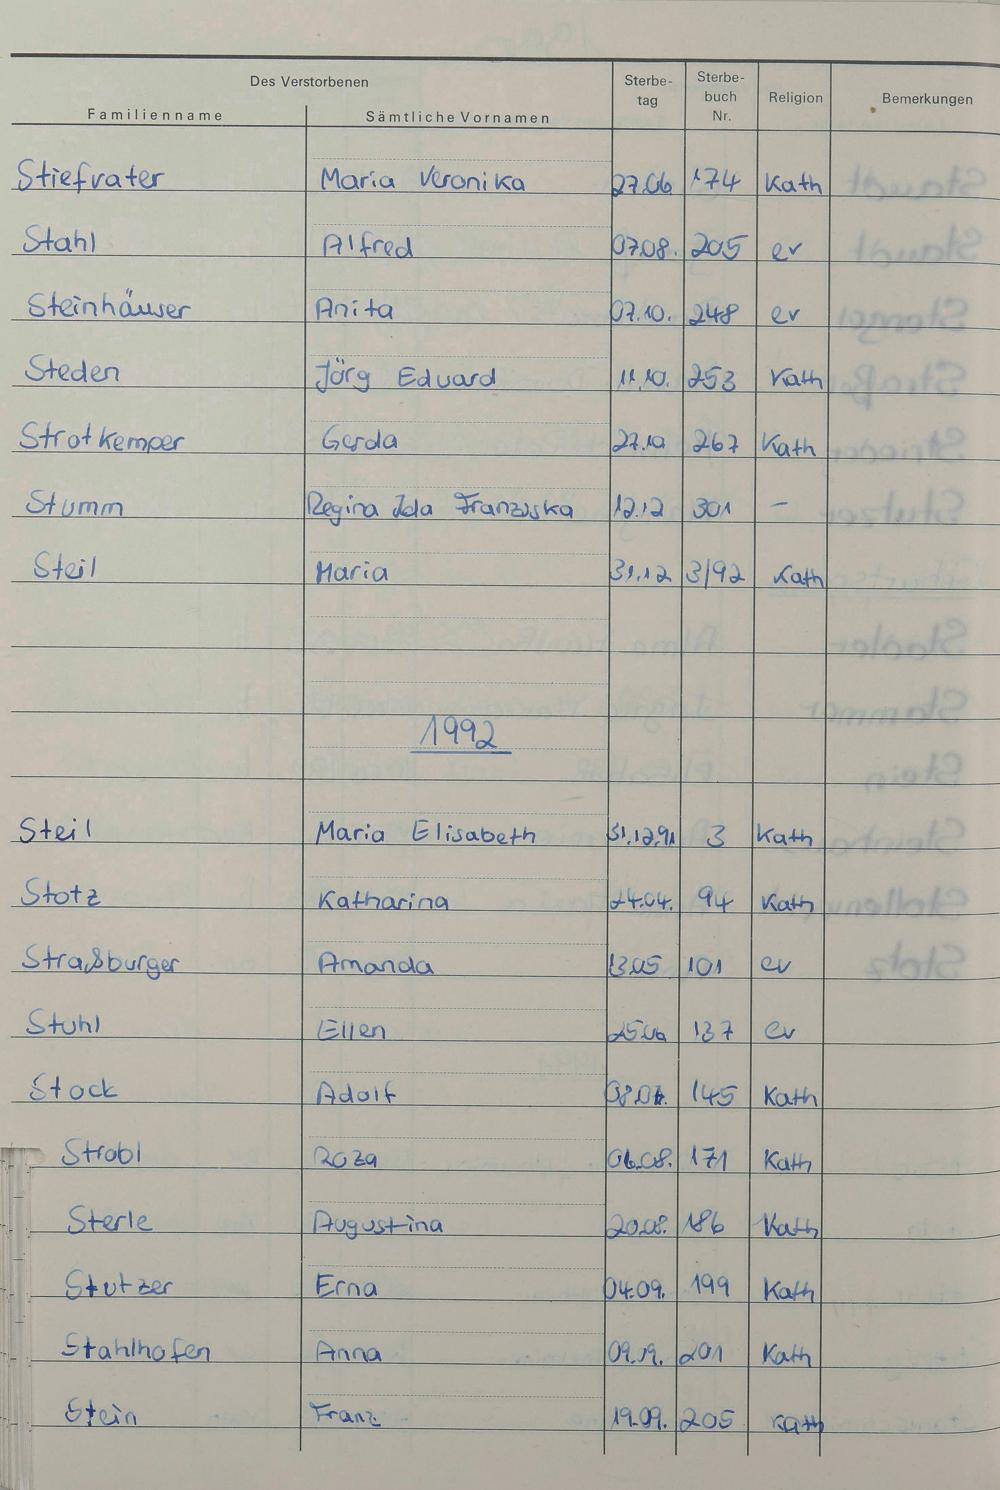 Des Verstorbenen
Familienname Sämtliche Vornamen Sterbe-tag Sterbe-buch Nr. Religion Bemerkungen
Stiefvater Maria Veronika 27.06 174 Kath
Stahl Alfred 07.08. 205 ev
Steinhäuser Anita 07.10. 248 ev
Steden Jörg Eduard 11.10. 253 Kath
Strotkemper Gerda 27.10 267 Kath
Stumm Regina Ida Franziska 12.12 301 –
Steil Maria 31.12 3/92 Kath
1992
Steil Maria Elisabeth 31.12.91 3 Kath
Stotz Katharina 24.04. 94 Kath
Straßburger Amanda 13.05 101 ev
Stuhl Ellen 25.06 137 ev
Stock Adolf 145 Kath
Strobl Roza 06.08. 171 Kath
Sterle Augustina 20.08. 186 Kath
Stutzer Erna 04.09. 199 Kath
Stahlhofen Anna 201 Kath
Stein Franz 19.09. 205 Kath